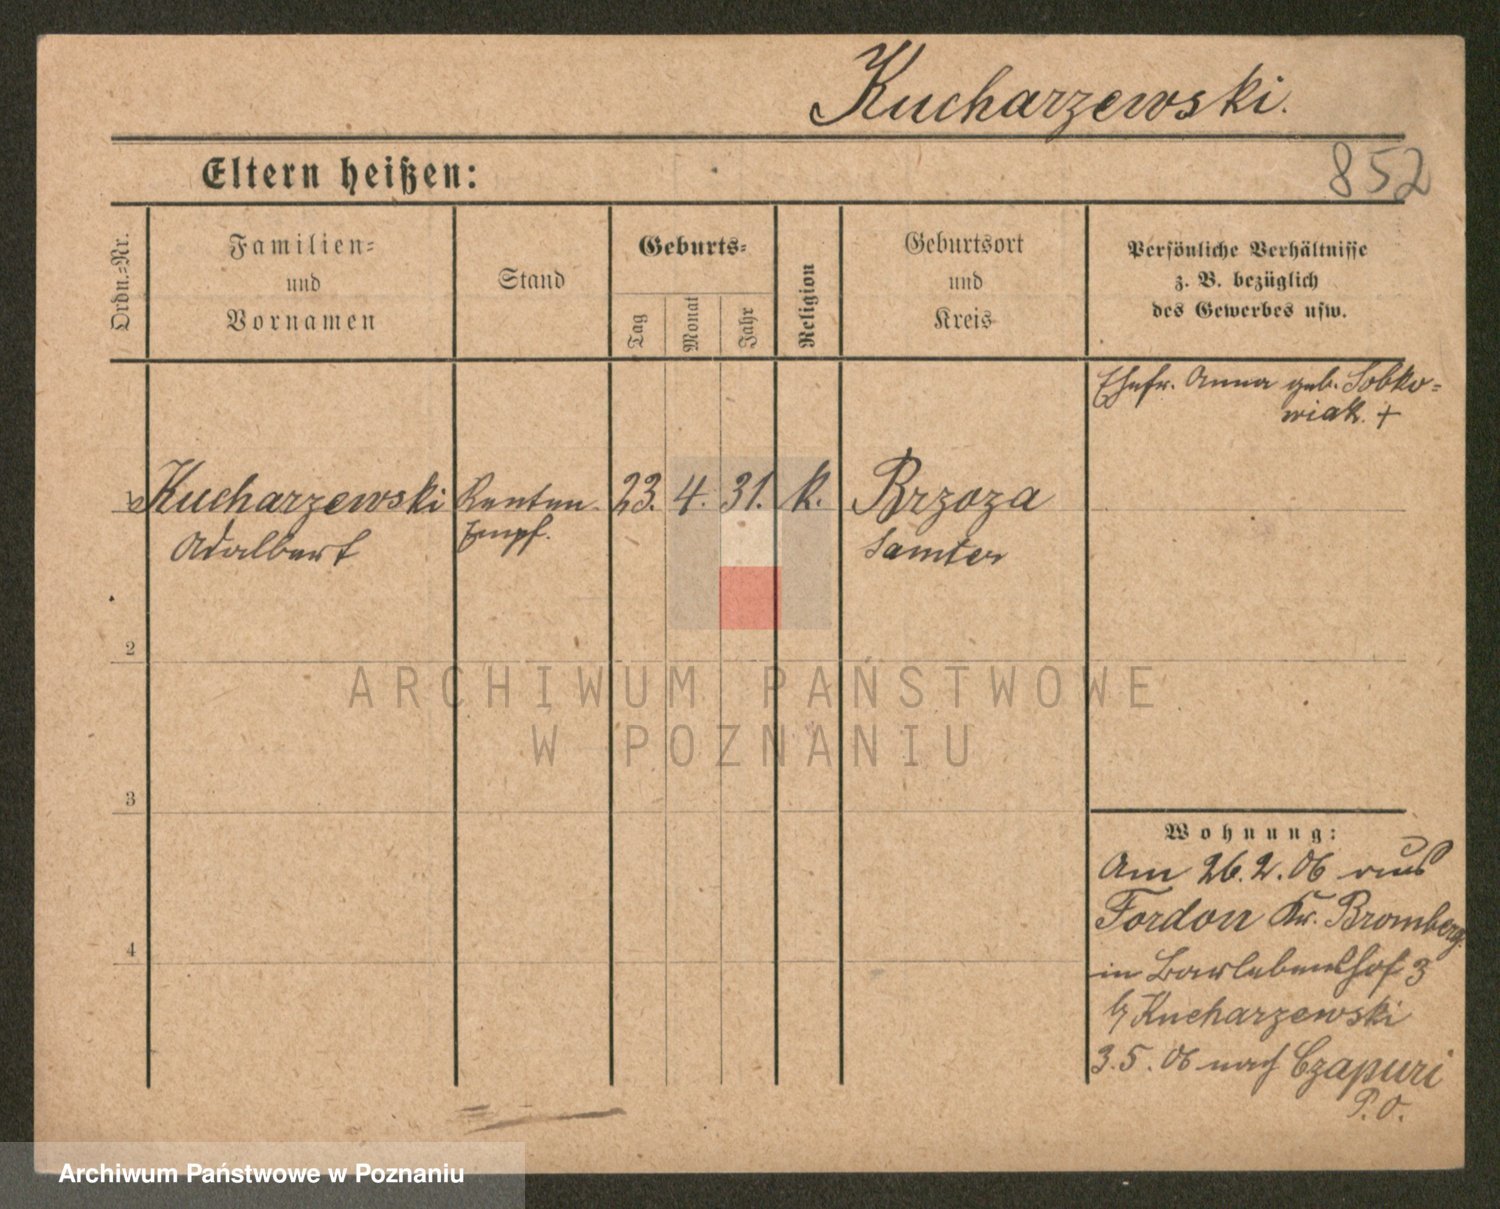 Kucharzewski.
Eltern heißen:
852
Ordn.=Nr.
Familien=
und
Vornamen
Stand
Geburts=
Tag
Monat
Jahr
Religion
Geburtsort
und
Kreis
Persönliche Verhältnisse
z. B. bezüglich
des Gewerbes usw.
Ehefr. Anna geb. Sobko=
wiak. +
Kucharzewski Renten 23. 4. 31. k. Brzoza
Adalbert Empf. Samter
2
3
4
Wohnung:
Am 26.2.06 aus
Fordon Kr. Bromberg.
in Barlebenshof 3
b/ Kucharzewski
3.5.06 nach Czapuri
P.O.
ARCHIWUM PAŃSTWOWE
W POZNANIU
Archiwum Państwowe w Poznaniu